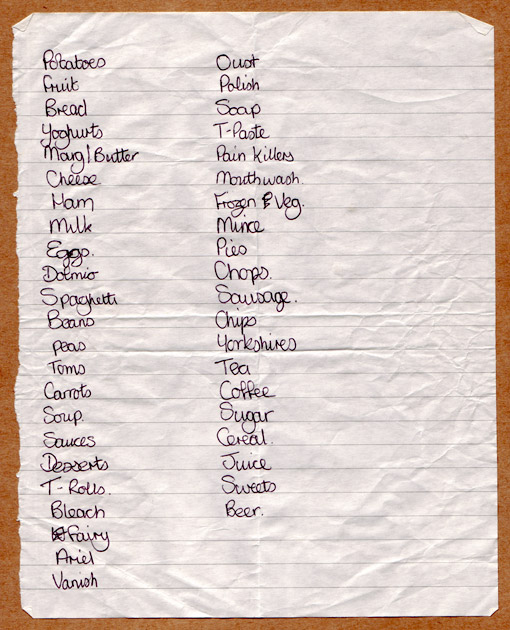 Potatoes
Fruit
Bread
Yoghurts
Marg/Butter
Cheese
Ham
Milk
Eggs.
Dolmio
Spaghetti
Beans
peas
Toms
Carrots
Soup.
Sauces
Desserts
T-Rolls.
Bleach
Fairy
Ariel
Vanish
Oust
Polish
Soap
T-Paste
Pain Killers
Mouthwash.
Frozen Veg.
Mince
Pies
Chops.
Sausage.
Chips
Yorkshires
Tea
Coffee
Sugar
Cereal.
Juice
Sweets
Beer.